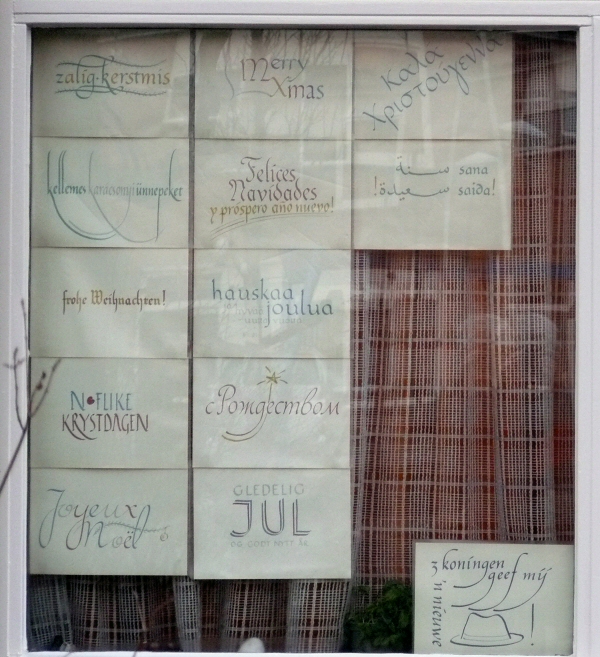 zalig kerstmis
kellemes karácsonyi ünnepeket
frohe Weihnachten!
NOFLIKE
KRYSTDAGEN
Joyeux
Noël
Merry
Xmas
Felices
Navidades
y próspero año nuevo!
hauskaa
joulua
с Рождеством
GLEDELIG
JUL
OG GODT NYTT ÅR
Καλα
Χριστούγεννα
سنة sana
سعيدة! saida!
3 koningen
geef mij
'n nieuwe
!